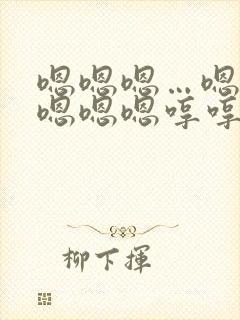 嗯嗯嗯…嗯
嗯嗯嗯哼哼
柳下揮